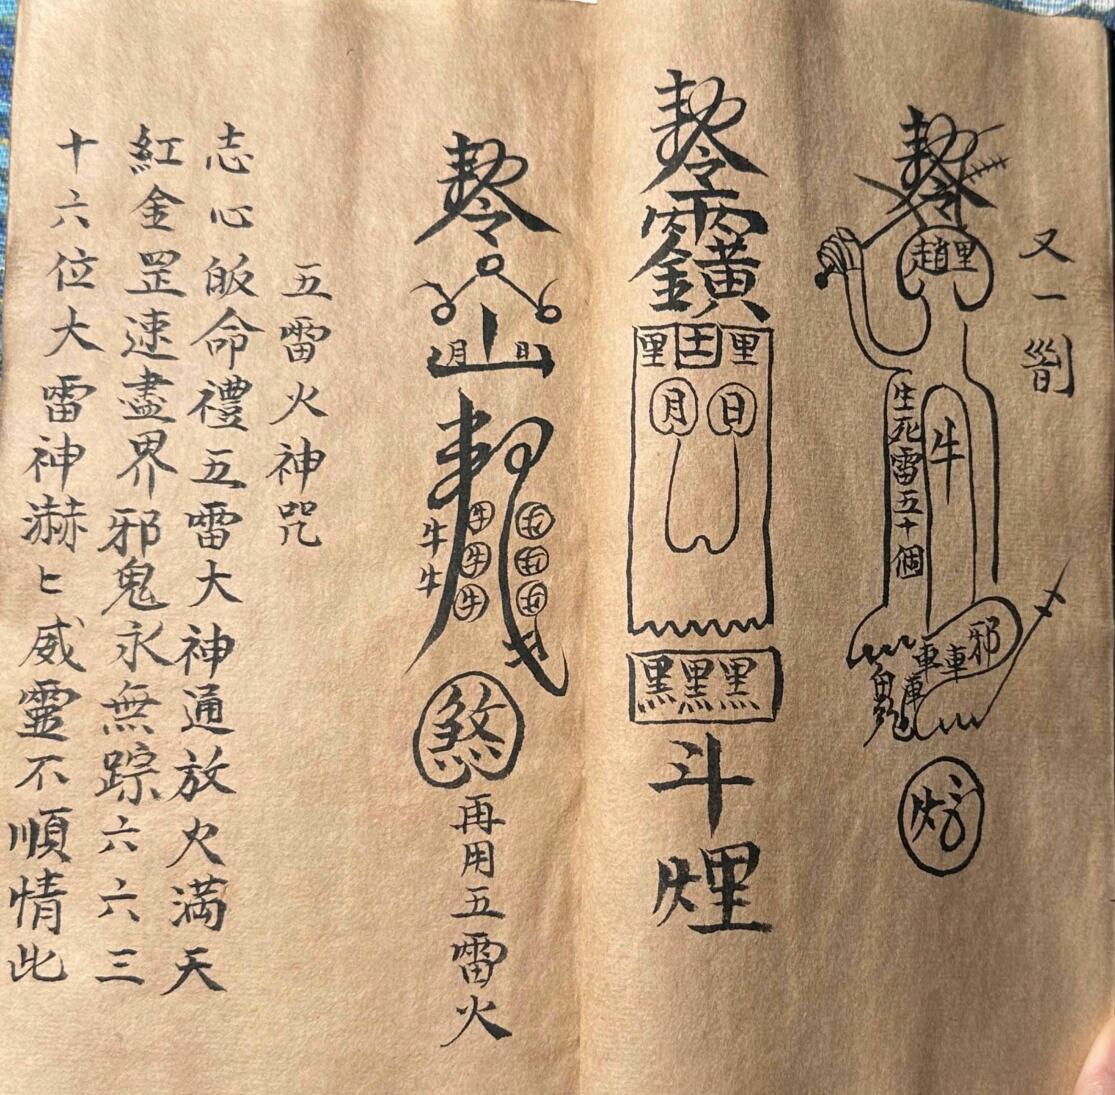 又一劄
趙里
生死雷五十個
牛
邪
車車車
鬼
里
里
月
日
黑黑黑
斗
煙
山
月
日
牛牛
牛牛牛
煞
再用五雷火
五雷火神咒
志心皈命禮五雷大神通放火満天
紅金罡速盡界邪鬼永無踪六六三
十六位大雷神瀨匕威靈不順情此